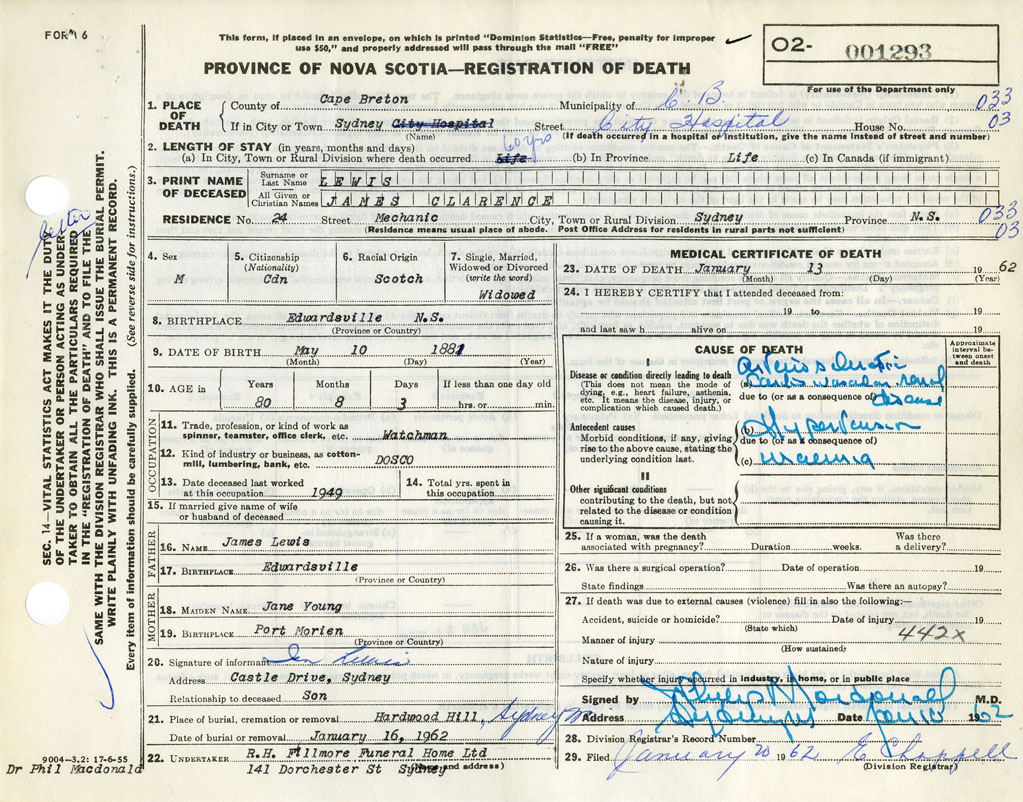 FORM 6
This form, if placed in an envelope, on which is printed "Dominion Statistics—Free, penalty for improper
use $50," and properly addressed will pass through the mail "FREE"
02- 001293
PROVINCE OF NOVA SCOTIA—REGISTRATION OF DEATH
For use of the Department only
1. PLACE OF DEATH
County of Cape Breton Municipality of C. B. 033
If in City or Town Sydney City Hospital Street City Hospital House No. 03
(Name) (If death occurred in a hospital or institution, give the name instead of street and number)
2. LENGTH OF STAY (in years, months and days) 60 yrs
(a) In City, Town or Rural Division where death occurred Life (b) In Province Life (c) In Canada (if immigrant)
3. PRINT NAME OF DECEASED
Surname or Last Name LEWIS
All Given or Christian Names JAMES CLARENCE
RESIDENCE No. 24 Street Mechanic City, Town or Rural Division Sydney Province N.S. 033
(Residence means usual place of abode. Post Office Address for residents in rural parts not sufficient) 03
4. Sex
M
5. Citizenship
(Nationality)
Cdn
6. Racial Origin
Scotch
7. Single, Married,
Widowed or Divorced
(write the word)
Widowed
8. BIRTHPLACE Edwardsville N.S.
(Province or Country)
9. DATE OF BIRTH May 10 1881
(Month) (Day) (Year)
10. AGE in Years Months Days If less than one day old
80 8 3 hrs. or min.
OCCUPATION
11. Trade, profession, or kind of work as
spinner, teamster, office clerk, etc. Watchman
12. Kind of industry or business, as cotton-
mill, lumbering, bank, etc. DOSCO
13. Date deceased last worked
at this occupation 1949
14. Total yrs. spent in
this occupation
15. If married give name of wife
or husband of deceased
FATHER
16. NAME James Lewis
17. BIRTHPLACE Edwardsville
(Province or Country)
MOTHER
18. MAIDEN NAME Jane Young
19. BIRTHPLACE Port Morien
(Province or Country)
20. Signature of informant Lewis
Address Castle Drive, Sydney
Relationship to deceased Son
21. Place of burial, cremation or removal Hardwood Hill, Sydney
Date of burial or removal January 16, 1962
22. UNDERTAKER R.H. Fillmore Funeral Home Ltd
141 Dorchester St Sydney
(Name and address)
MEDICAL CERTIFICATE OF DEATH
23. DATE OF DEATH January 13 1962
(Month) (Day) (Year)
24. I HEREBY CERTIFY that I attended deceased from:
19 to 19
and last saw h alive on 19
CAUSE OF DEATH
Approximate
interval be-
tween onset
and death
I
Disease or condition directly leading to death
(This does not mean the mode of
dying, e.g., heart failure, asthenia,
etc. It means the disease, injury, or
complication which caused death.)
Arteriosclerotic
(a) cardio vascular renal
due to (or as a consequence of) disease
Antecedent causes
Morbid conditions, if any, giving
rise to the above cause, stating the
underlying condition last.
(b) Hypertension
due to (or as a consequence of)
(c) uraemia
II
Other significant conditions
contributing to the death, but not
related to the disease or condition
causing it.
25. If a woman, was the death
associated with pregnancy? Duration weeks. Was there
a delivery?
26. Was there a surgical operation? Date of operation 19
State findings Was there an autopsy?
27. If death was due to external causes (violence) fill in also the following:—
Accident, suicide or homicide? Date of injury 19
(State which)
442X
Manner of injury
(How sustained)
Nature of injury
Specify whether injury occurred in industry, in home, or in public place
Signed by Philip Macdonald M.D.
Address Sydney NS Date Jan 18 1962
28. Division Registrar's Record Number
29. Filed January 20 1962 E Chappell
(Division Registrar)
SEC. 14—VITAL STATISTICS ACT MAKES IT THE DUTY
OF THE UNDERTAKER OR PERSON ACTING AS UNDER-
TAKER TO OBTAIN ALL THE PARTICULARS REQUIRED
IN THE "REGISTRATION OF DEATH" AND TO FILE THE
SAME WITH THE DIVISION REGISTRAR WHO SHALL ISSUE THE BURIAL PERMIT.
WRITE PLAINLY WITH UNFADING INK. THIS IS A PERMANENT RECORD.
Every item of information should be carefully supplied. (See reverse side for instructions.)
9004-3.2: 17-6-55
Dr Phil Macdonald